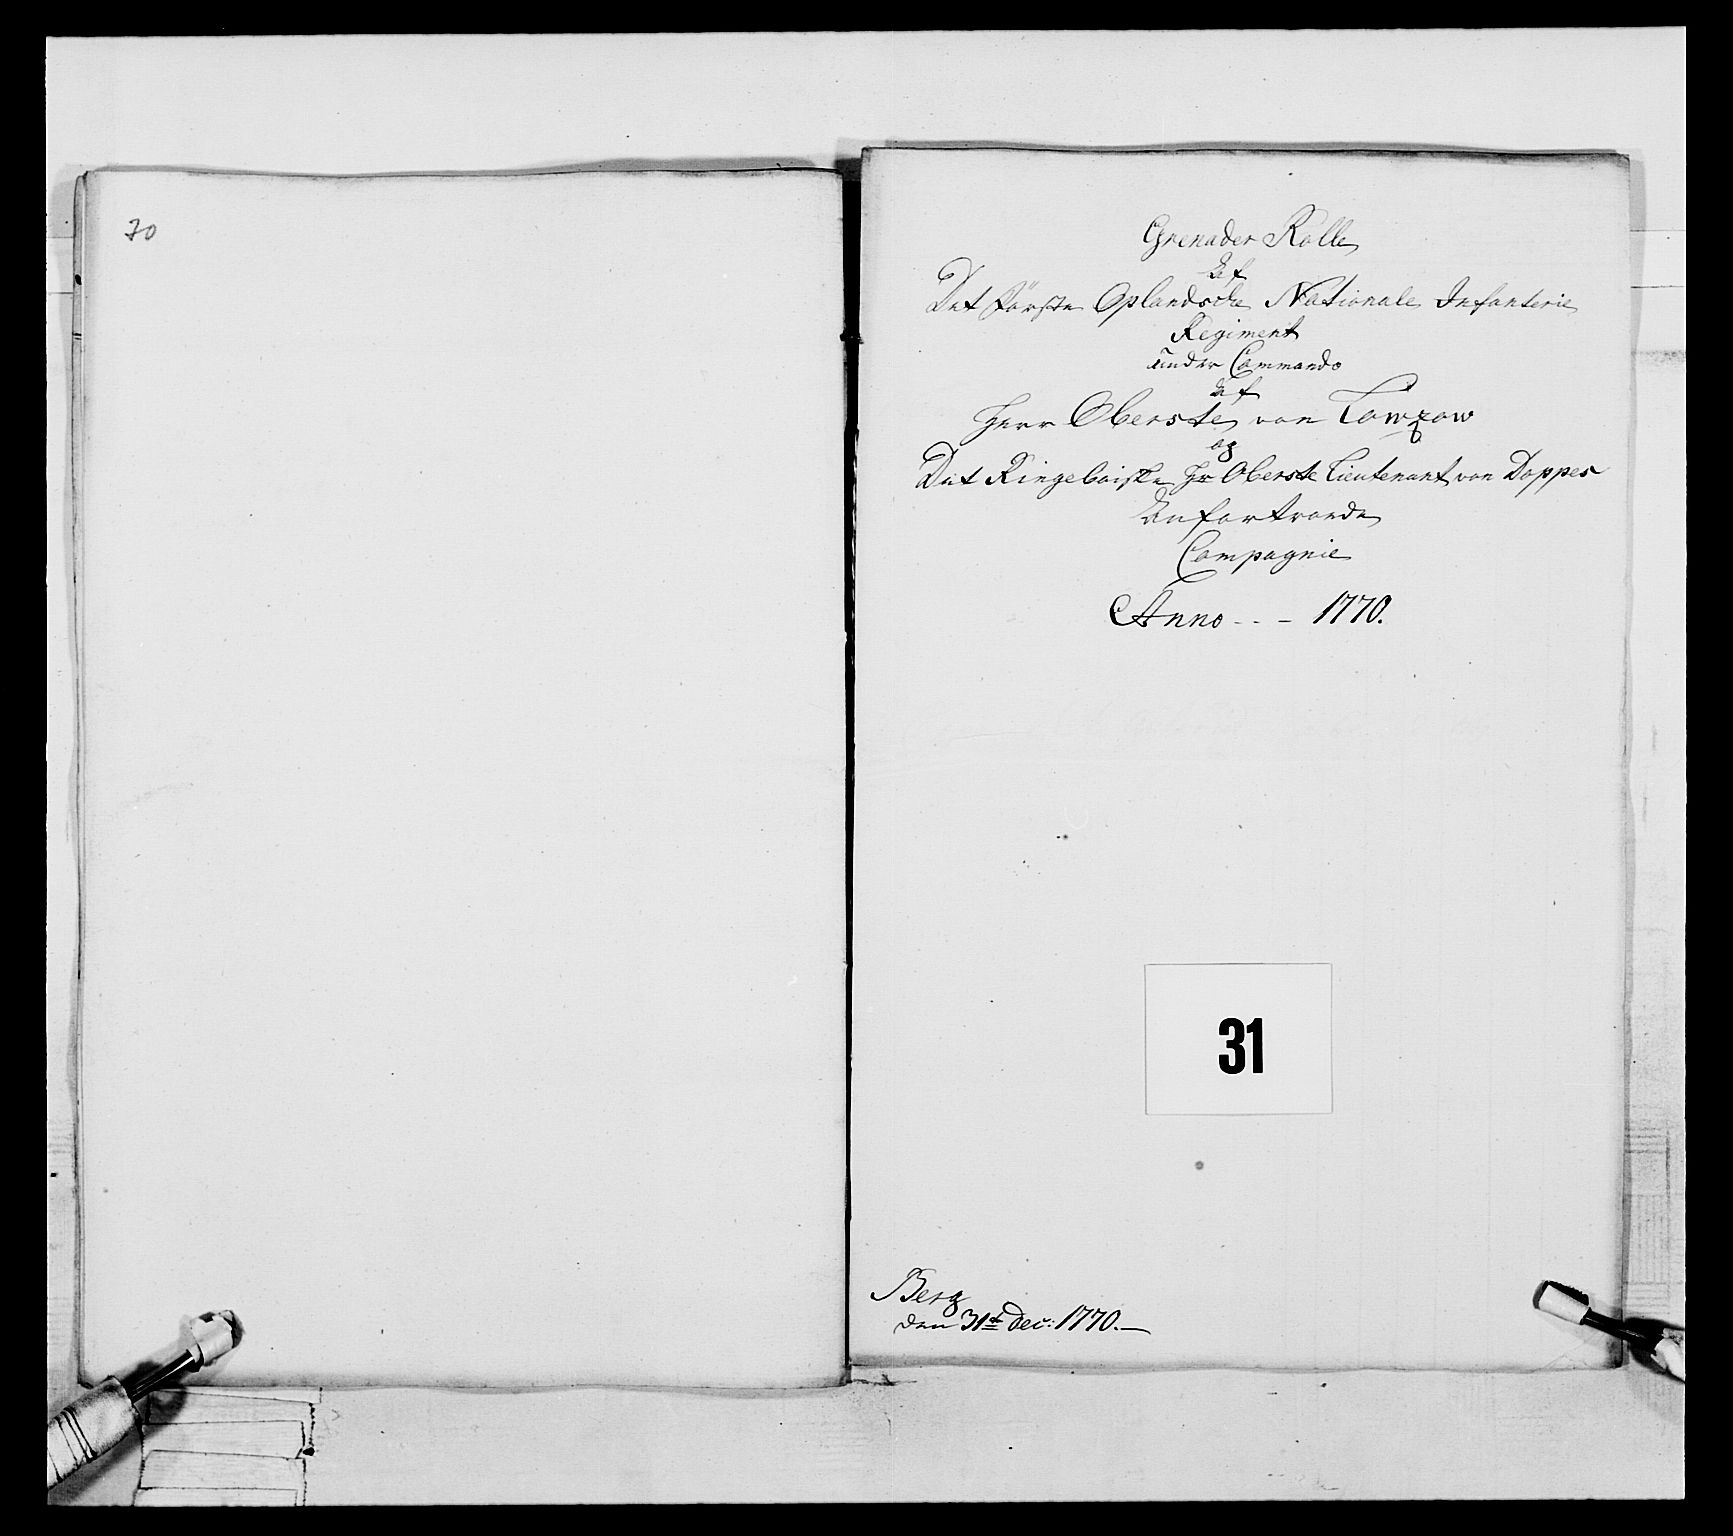 30
Grenader Rolle
af
Det förste Oplandsche Nationale Infanterie
Regiment
under Commando
af
Herr Oberste von Lowzow
og
Det Ringeboiske Hr Oberste Lieutenant von Doppes
anfortroede
Compagnie
Anno - - - 1770.
31
Berg
den 31te Dec: 1770.—